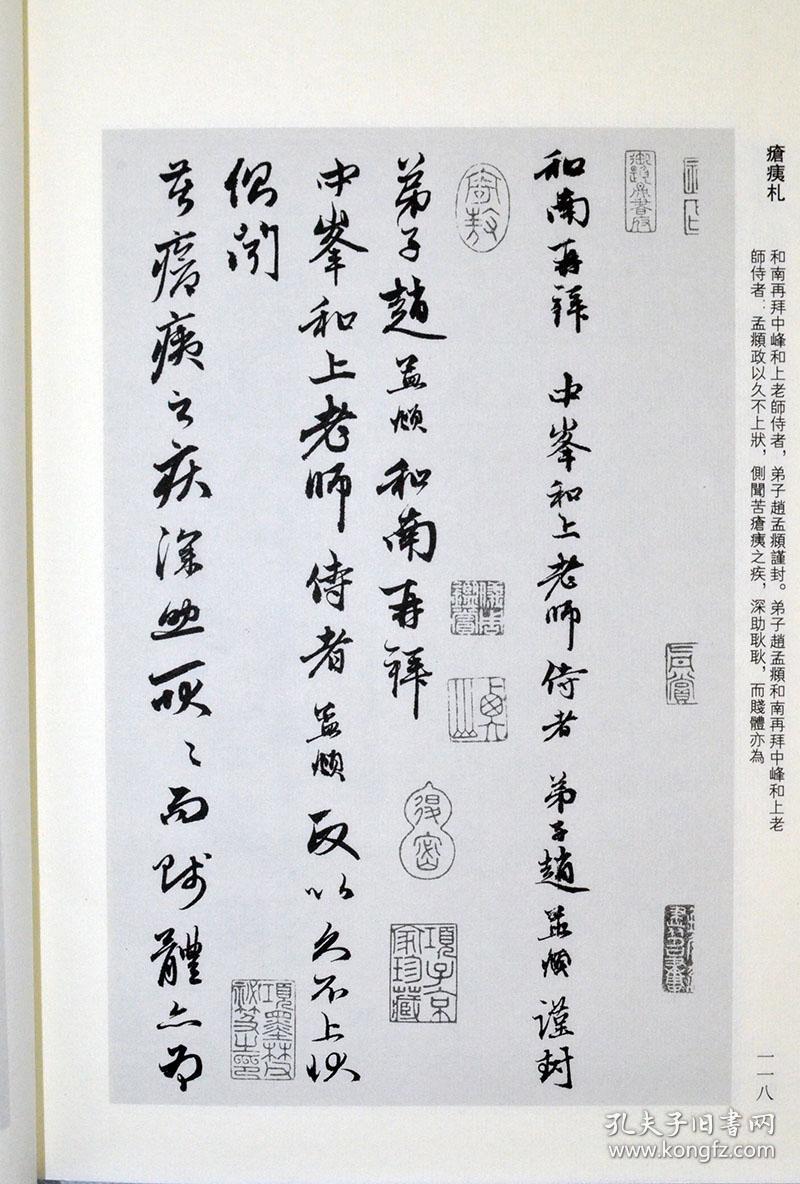 瘡痍札
和南再拜中峰和上老師侍者,弟子趙孟頫謹封。弟子趙孟頫和南再拜中峰和上老
師侍者:孟頫政以久不上狀,側聞苦瘡痍之疾,深助耿耿,而賤體亦為
一一八
和南再拜 中峯和上老師侍者 弟子趙孟頫謹封
弟子趙孟頫和南再拜
中峯和上老師侍者孟頫政以久不上狀
側聞
苦瘡痍之疾深助耿〻而賤體亦為
項子京家珍藏
項墨林祕笈之印
孔夫子旧书网
www.kongfz.com